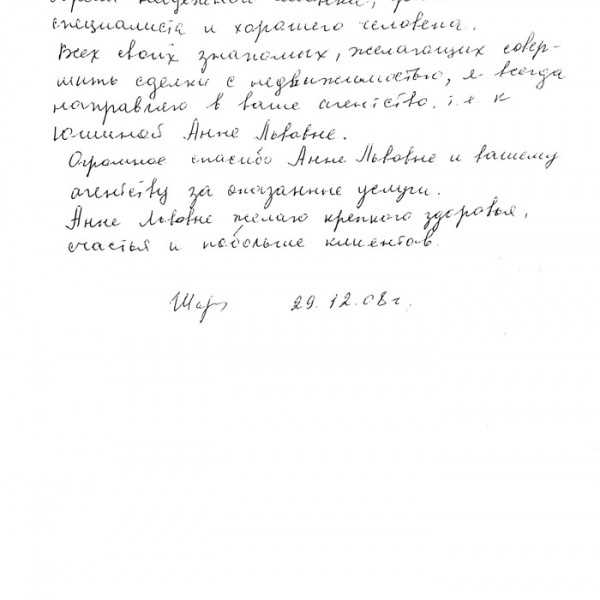 специалиста и хорошего человека.
Всех своих знакомых, желающих совер-
шить сделки с недвижимостью, я всегда
направляю в ваше агентство, т.е. к
Юшиной Анне Львовне.
Огромное спасибо Анне Львовне и вашему
агентству за оказанные услуги.
Анне Львовне желаю крепкого здоровья,
счастья и побольше клиентов.
29.12.08г.